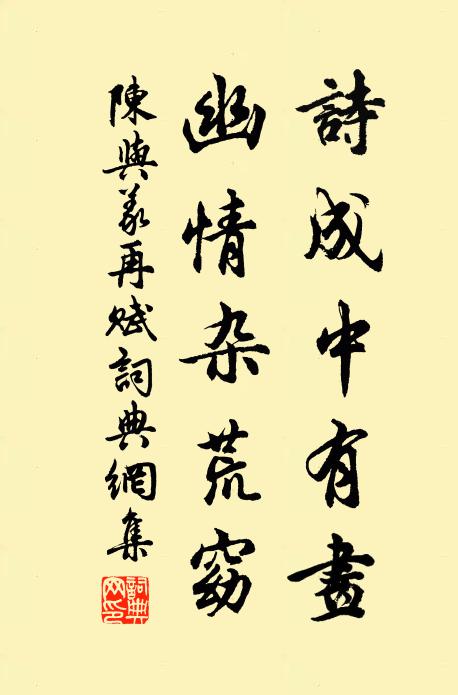 詩成中有畫
幽情杂荒窈
陳與义再赋詞典網集
詞典網印